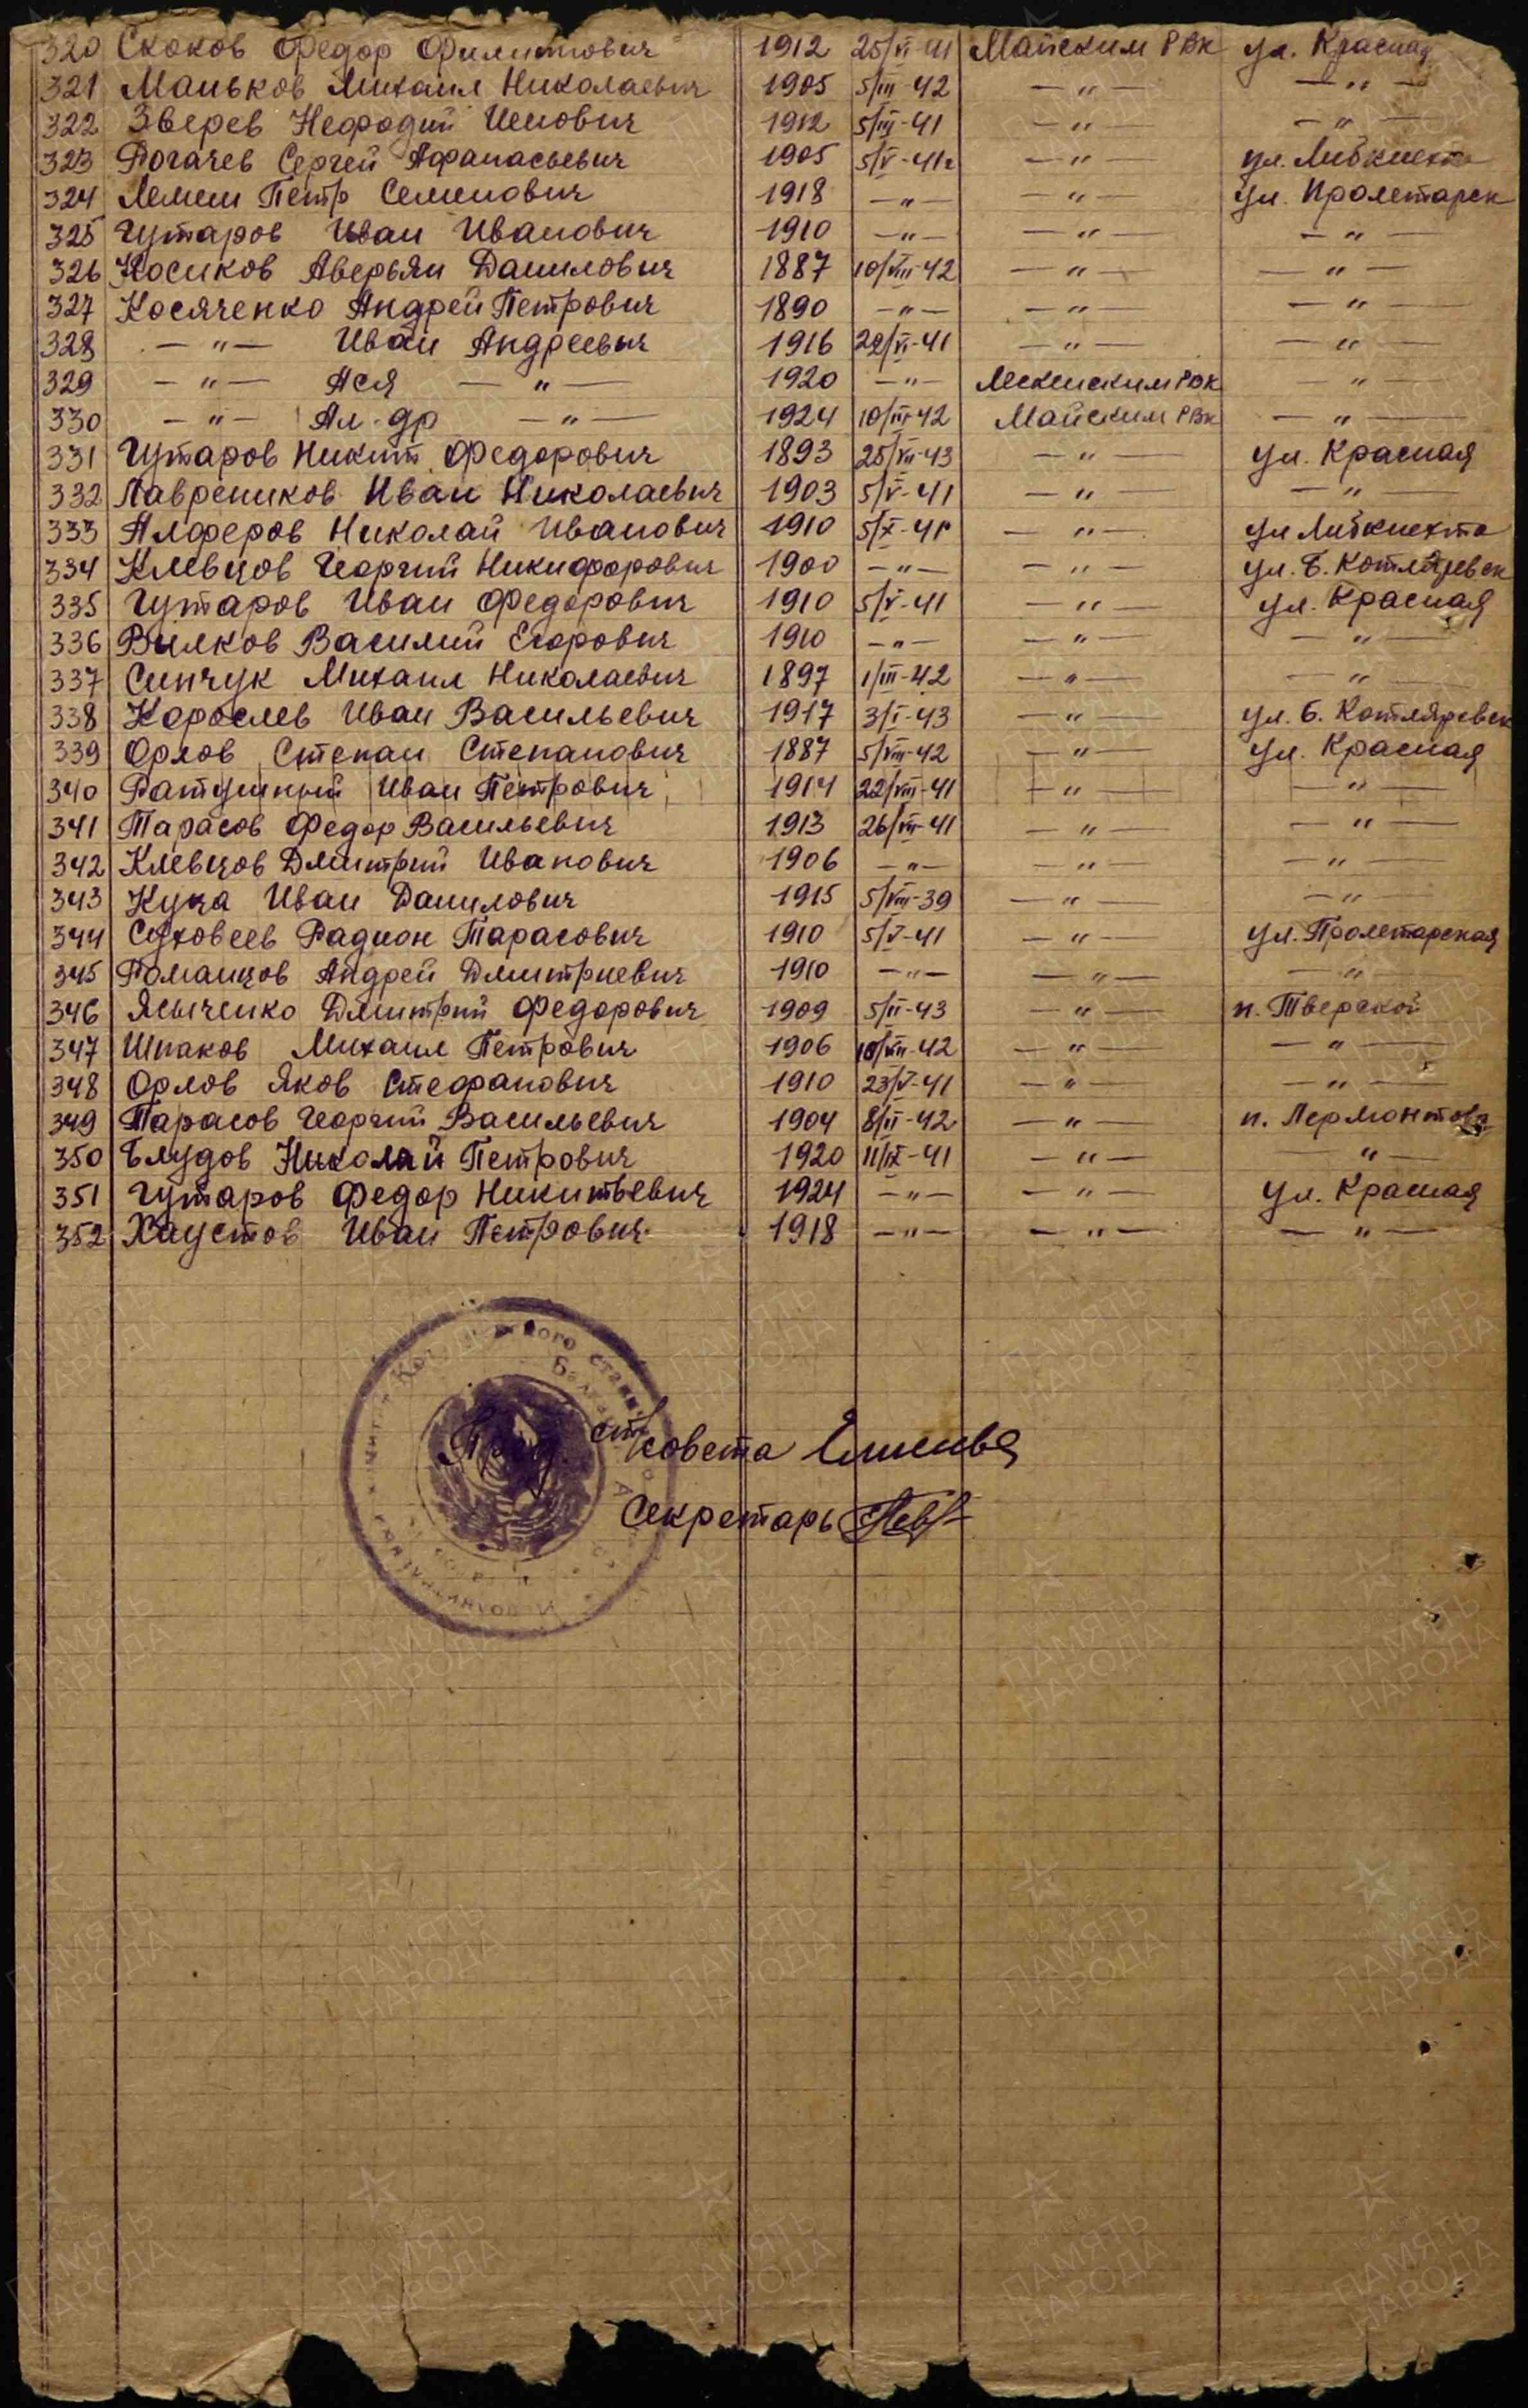 320 Скоков Федор Филиппович 1912 25/VI-41 Майским РВК ул. Красная
321 Маньков Михаил Николаевич 1905 5/III-42 —"— —"—
322 Зверев Нефодий Иенович 1912 5/III-41 —"— —"—
323 Рогачев Сергей Афанасьевич 1905 5/V-41г —"— ул. Либкнехта
324 Лемеш Петр Семенович 1918 —"— —"— ул. Пролетарск
325 Гутаров Иван Иванович 1910 —"— —"— —"—
326 Носиков Аверьян Данилович 1887 10/VIII-42 —"— —"—
327 Косяченко Андрей Петрович 1890 —"— —"— —"—
328 —"— Иван Андреевич 1916 22/VI-41 —"— —"—
329 —"— Ася —"— 1920 —"— Лескенским РВК —"—
330 —"— Ал-др —"— 1924 10/III-42 Майским РВК —"—
331 Гутаров Никит Федорович 1893 25/VII-43 —"— ул. Красная
332 Лавреников Иван Николаевич 1903 5/V-41 —"— —"—
333 Алферов Николай Иванович 1910 5/X-41 —"— ул Либкнехта
334 Клевцов Георгий Никифорович 1900 —"— —"— ул. Б. Котляревск
335 Гутаров Иван Федорович 1910 5/V-41 —"— ул. Красная
336 Вилков Василий Егорович 1910 —"— —"— —"—
337 Синчук Михаил Николаевич 1897 1/III-42 —"— —"—
338 Королев Иван Васильевич 1917 3/I-43 —"— ул. Б. Котляревск
339 Орлов Степан Степанович 1887 5/VIII-42 —"— ул. Красная
340 Ратушный Иван Петрович 1914 22/VIII-41 —"— —"—
341 Тарасов Федор Васильевич 1913 26/VII-41 —"— —"—
342 Клевцов Дмитрий Иванович 1906 —"— —"— —"—
343 Куча Иван Данилович 1915 5/VIII-39 —"— —"—
344 Суховеев Радион Тарасович 1910 5/V-41 —"— ул. Пролетарская
345 Романцов Андрей Дмитриевич 1910 —"— —"— —"—
346 Ясыченко Дмитрий Федорович 1909 5/II-43 —"— п. Тверской
347 Шпаков Михаил Петрович 1906 10/VIII-42 —"— —"—
348 Орлов Яков Стефанович 1910 23/V-41 —"— —"—
349 Тарасов Георгий Васильевич 1904 8/II-42 —"— п. Лермонтова
350 Блудов Николай Петрович 1920 11/IX-41 —"— —"—
351 Гутаров Федор Никитьевич 1924 —"— —"— ул. Красная
352 Хаустов Иван Петрович 1918 —"— —"— —"—
Пред. ст/совета
Секретарь